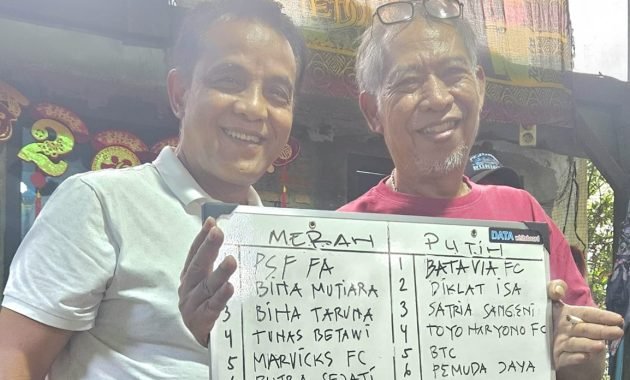 DATA whiteboard
MERAH PUTIH
PSF FA 1 BATAVIA FC
BINA MUTIARA 2 DIKLAT ISA
3 BINA TARUNA 3 SATRIA SANGENI
4 TUNAS BETAWI 4 TOYO HARYONO FC
5 MARVICKS FC 5 BTC
6 PUTRA SEJATI 6 PEMUDA JAYA